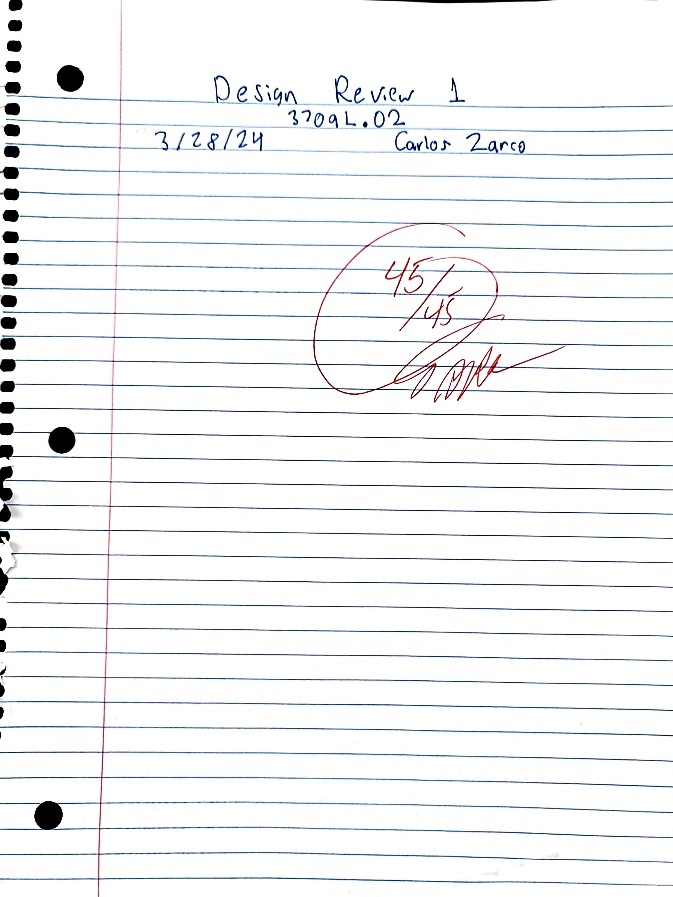 Design Review 1
3709L.02
3/28/24 Carlos Zarco
45/45